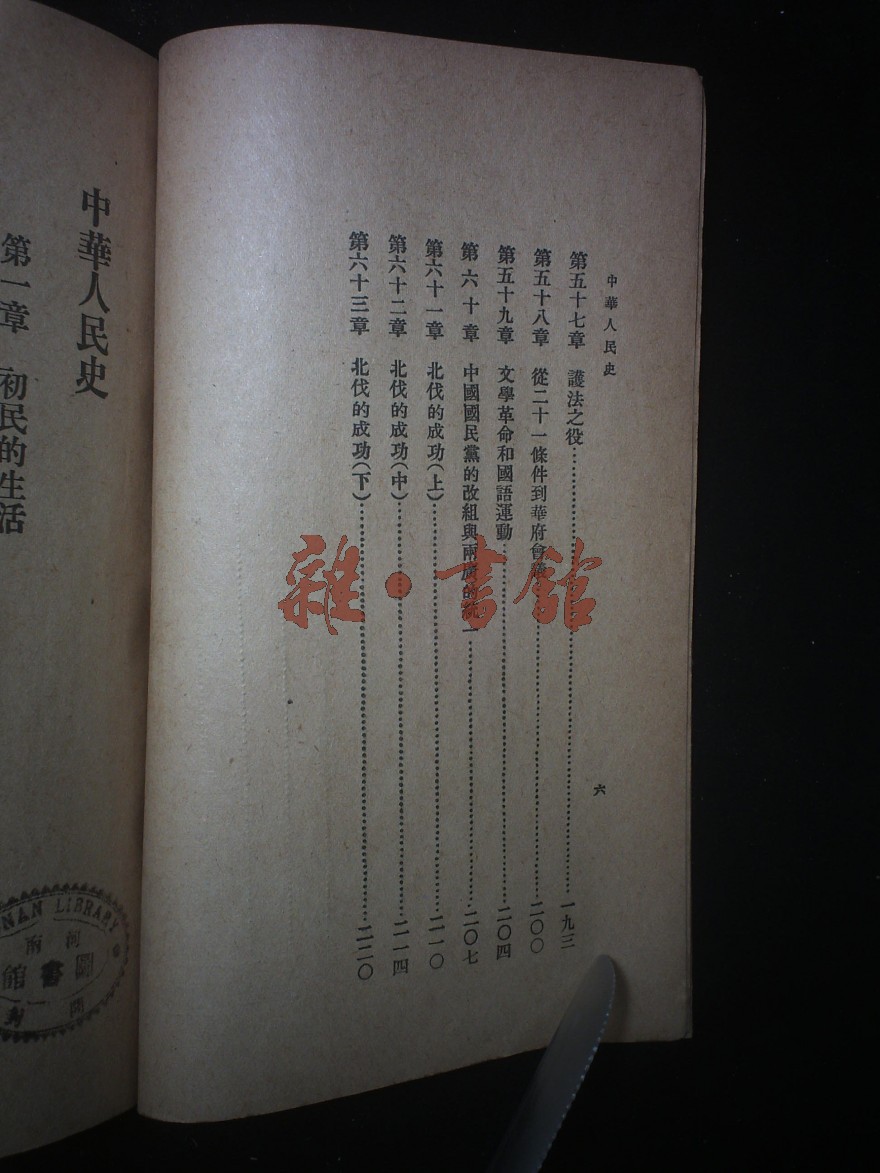 中華人民史
第五十七章 護法之役……一九三
第五十八章 從二十一條件到華府會議……二〇〇
第五十九章 文學革命和國語運動……二〇四
第六十章 中國國民黨的改組與兩廣的統一……二〇七
第六十一章 北伐的成功(上)……二一〇
第六十二章 北伐的成功(中)……二一四
第六十三章 北伐的成功(下)……二二〇
六
中華人民史
第一章 初民的生活
NAN LIBRARY
河南
圖書館
開封
雜·書館